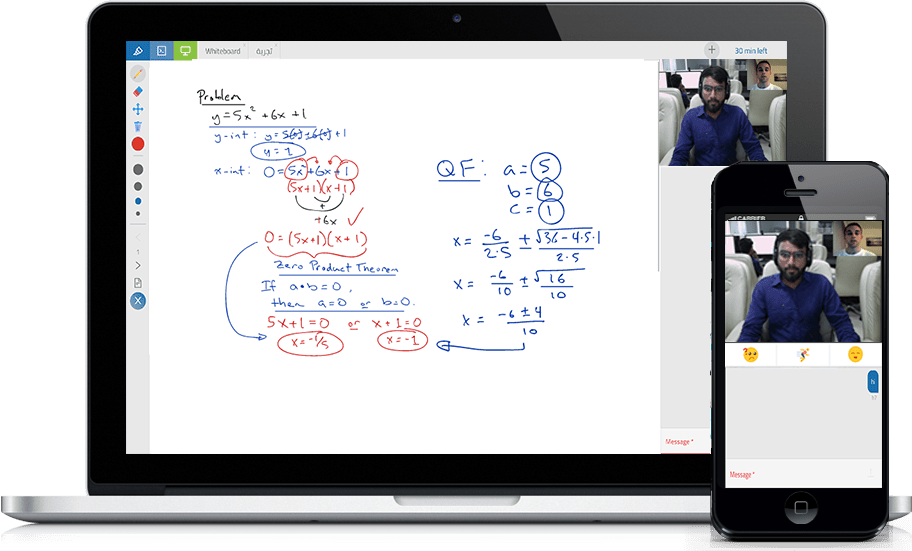 Whiteboard
تجربة
+
30 min left
Problem
y=5x²+6x+1
y-int: y=5(0)+6(0)+1
y=1
x-int: 0=5x²+6x+1
(5x+1)(x+1)
+
+6x ✓
0=(5x+1)(x+1)
Zero Product Theorem
If a•b=0,
then a=0 or b=0.
5x+1=0 or x+1=0
x=-1/5 x=-1
QF: a=5
b=6
c=1
x= -6/2·5 ± √36-4·5·1/2·5
x= -6/10 ± √16/10
x= -6±4/10
1
Message*
CARRIER
hi
Message*